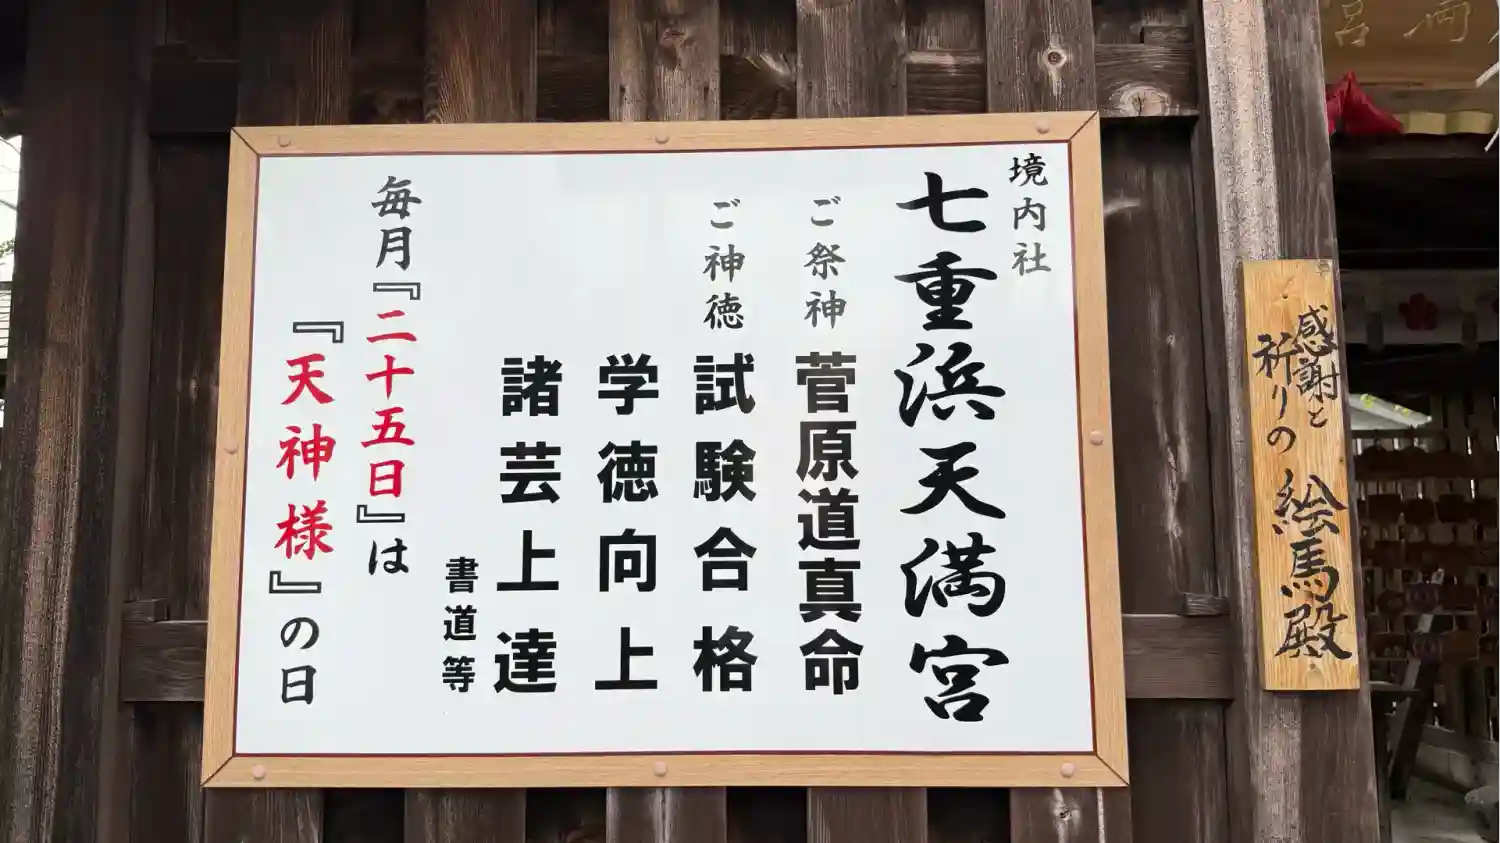 境内社
七重浜天満宮
ご祭神 菅原道真命
ご神徳 試験合格
学徳向上
諸芸上達
書道等
毎月『二十五日』は
『天神様』の日
感謝と
祈りの
絵馬殿